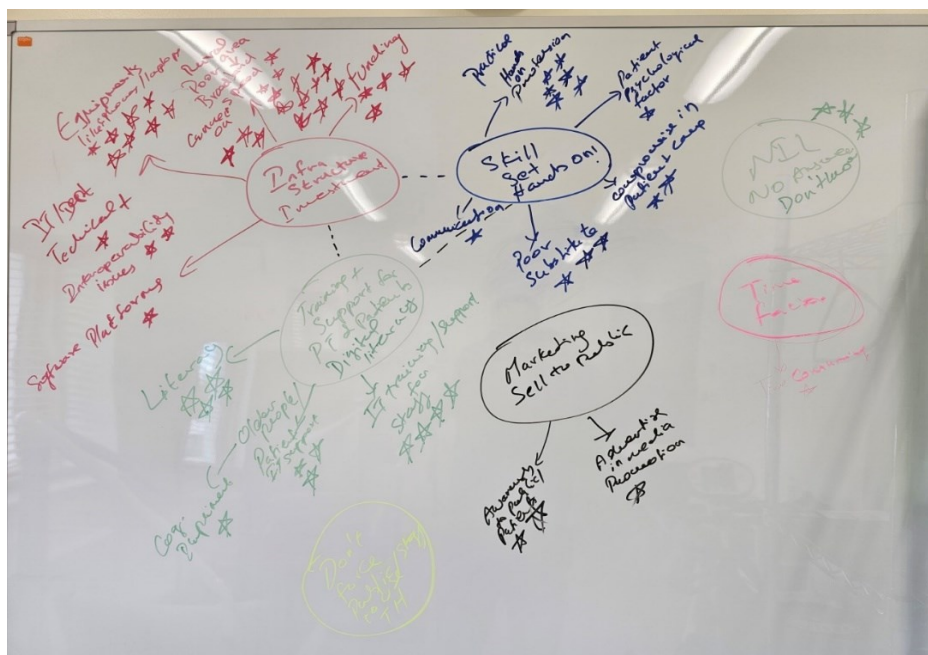 Equipments
like phones/laptops
Rural area
Poor
Broadband
Connection
on
funding
Infra
Structure
Investment
IT/Dept
Technical +
Interoperability
issues
Software Platforms
Practical
Hands
on
Patient
Psychological
factor
Skill
Set
Hands On!
compromise in
patient care
Communication
Poor
Substitute to
NIL
NO Answer
Don't know
Time
Training +
Support for
PT & Patients
Digital
literacy
Literacy
Older
People/
Patient
IT support
IT training/support
for
Staff
Cog.
Impairment
Marketing
Sell to Public
Awareness
to public/
patients
Advertise
in media
Promotion
Don't
force
public/staff
to use
TH